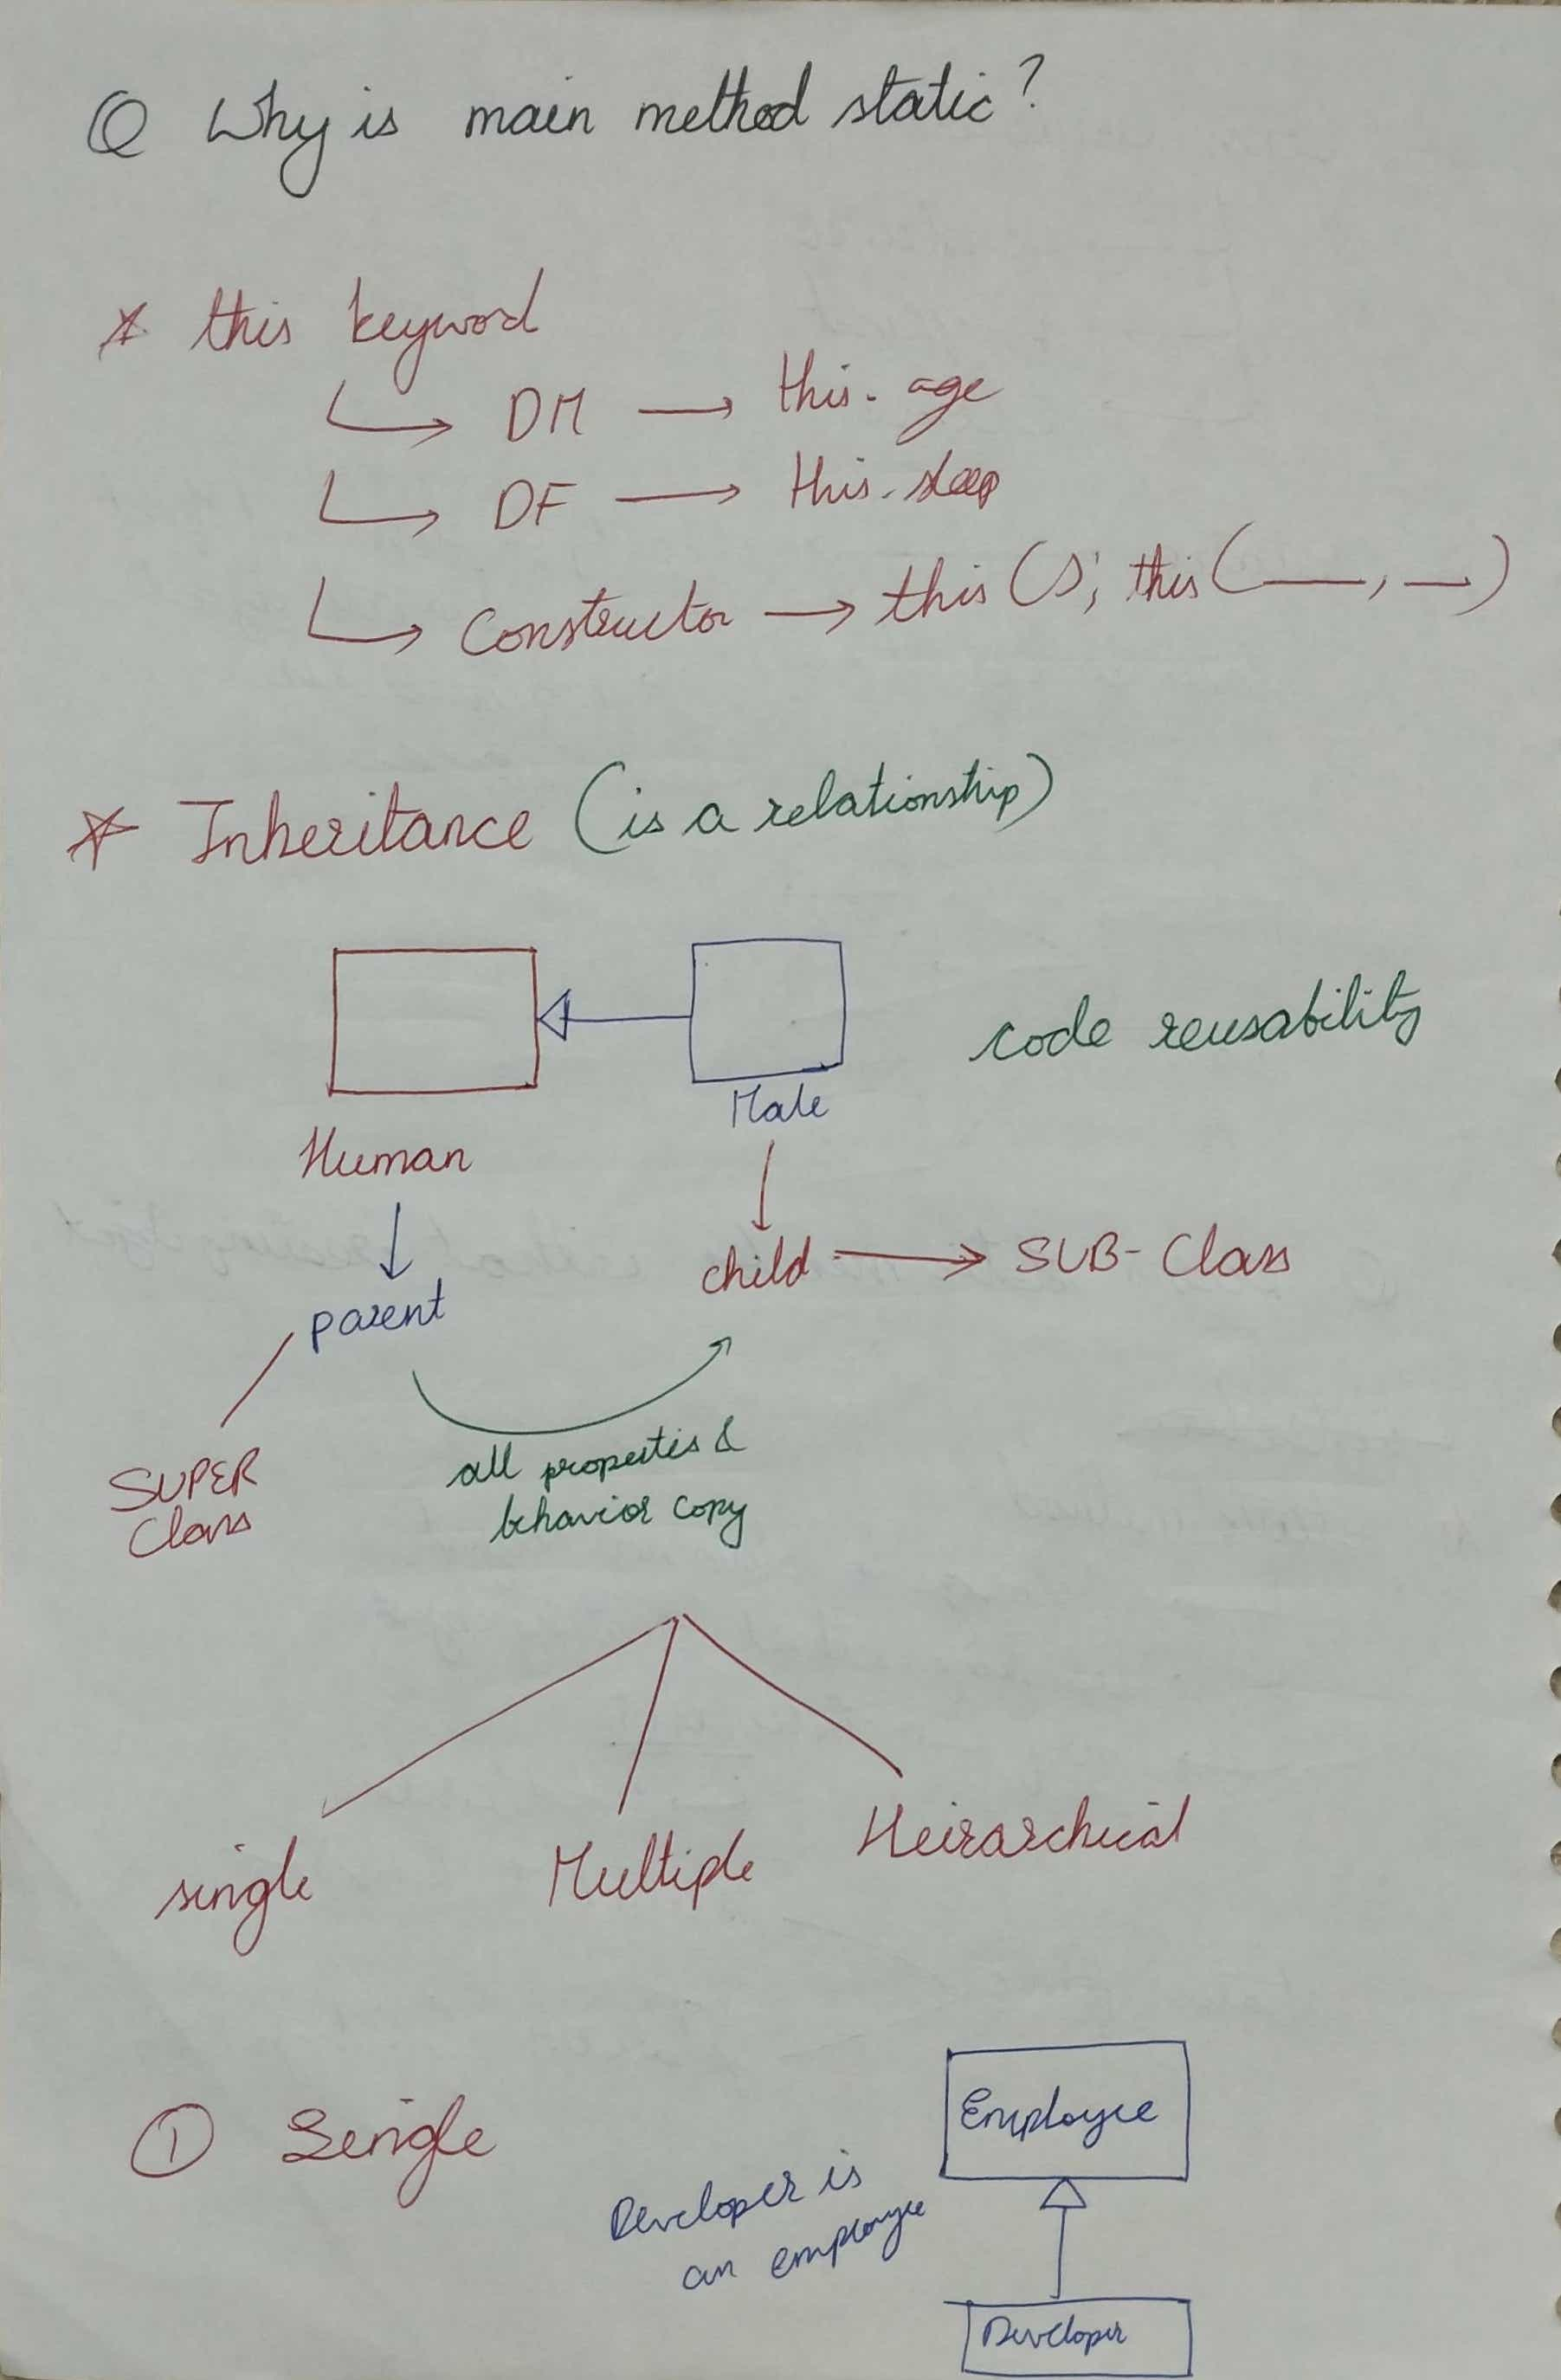 Q Why is main method static?
* this keyword
DM → this.age
DF → this.sleep
Constructor → this(); this(__, __)
* Inheritance (is a relationship)
Male
code reusability
Human
child → SUB-Class
parent
SUPER
Class
all properties &
behavior copy
single Multiple Heirarchical
① Single
Employee
Developer is
an employee
Developer